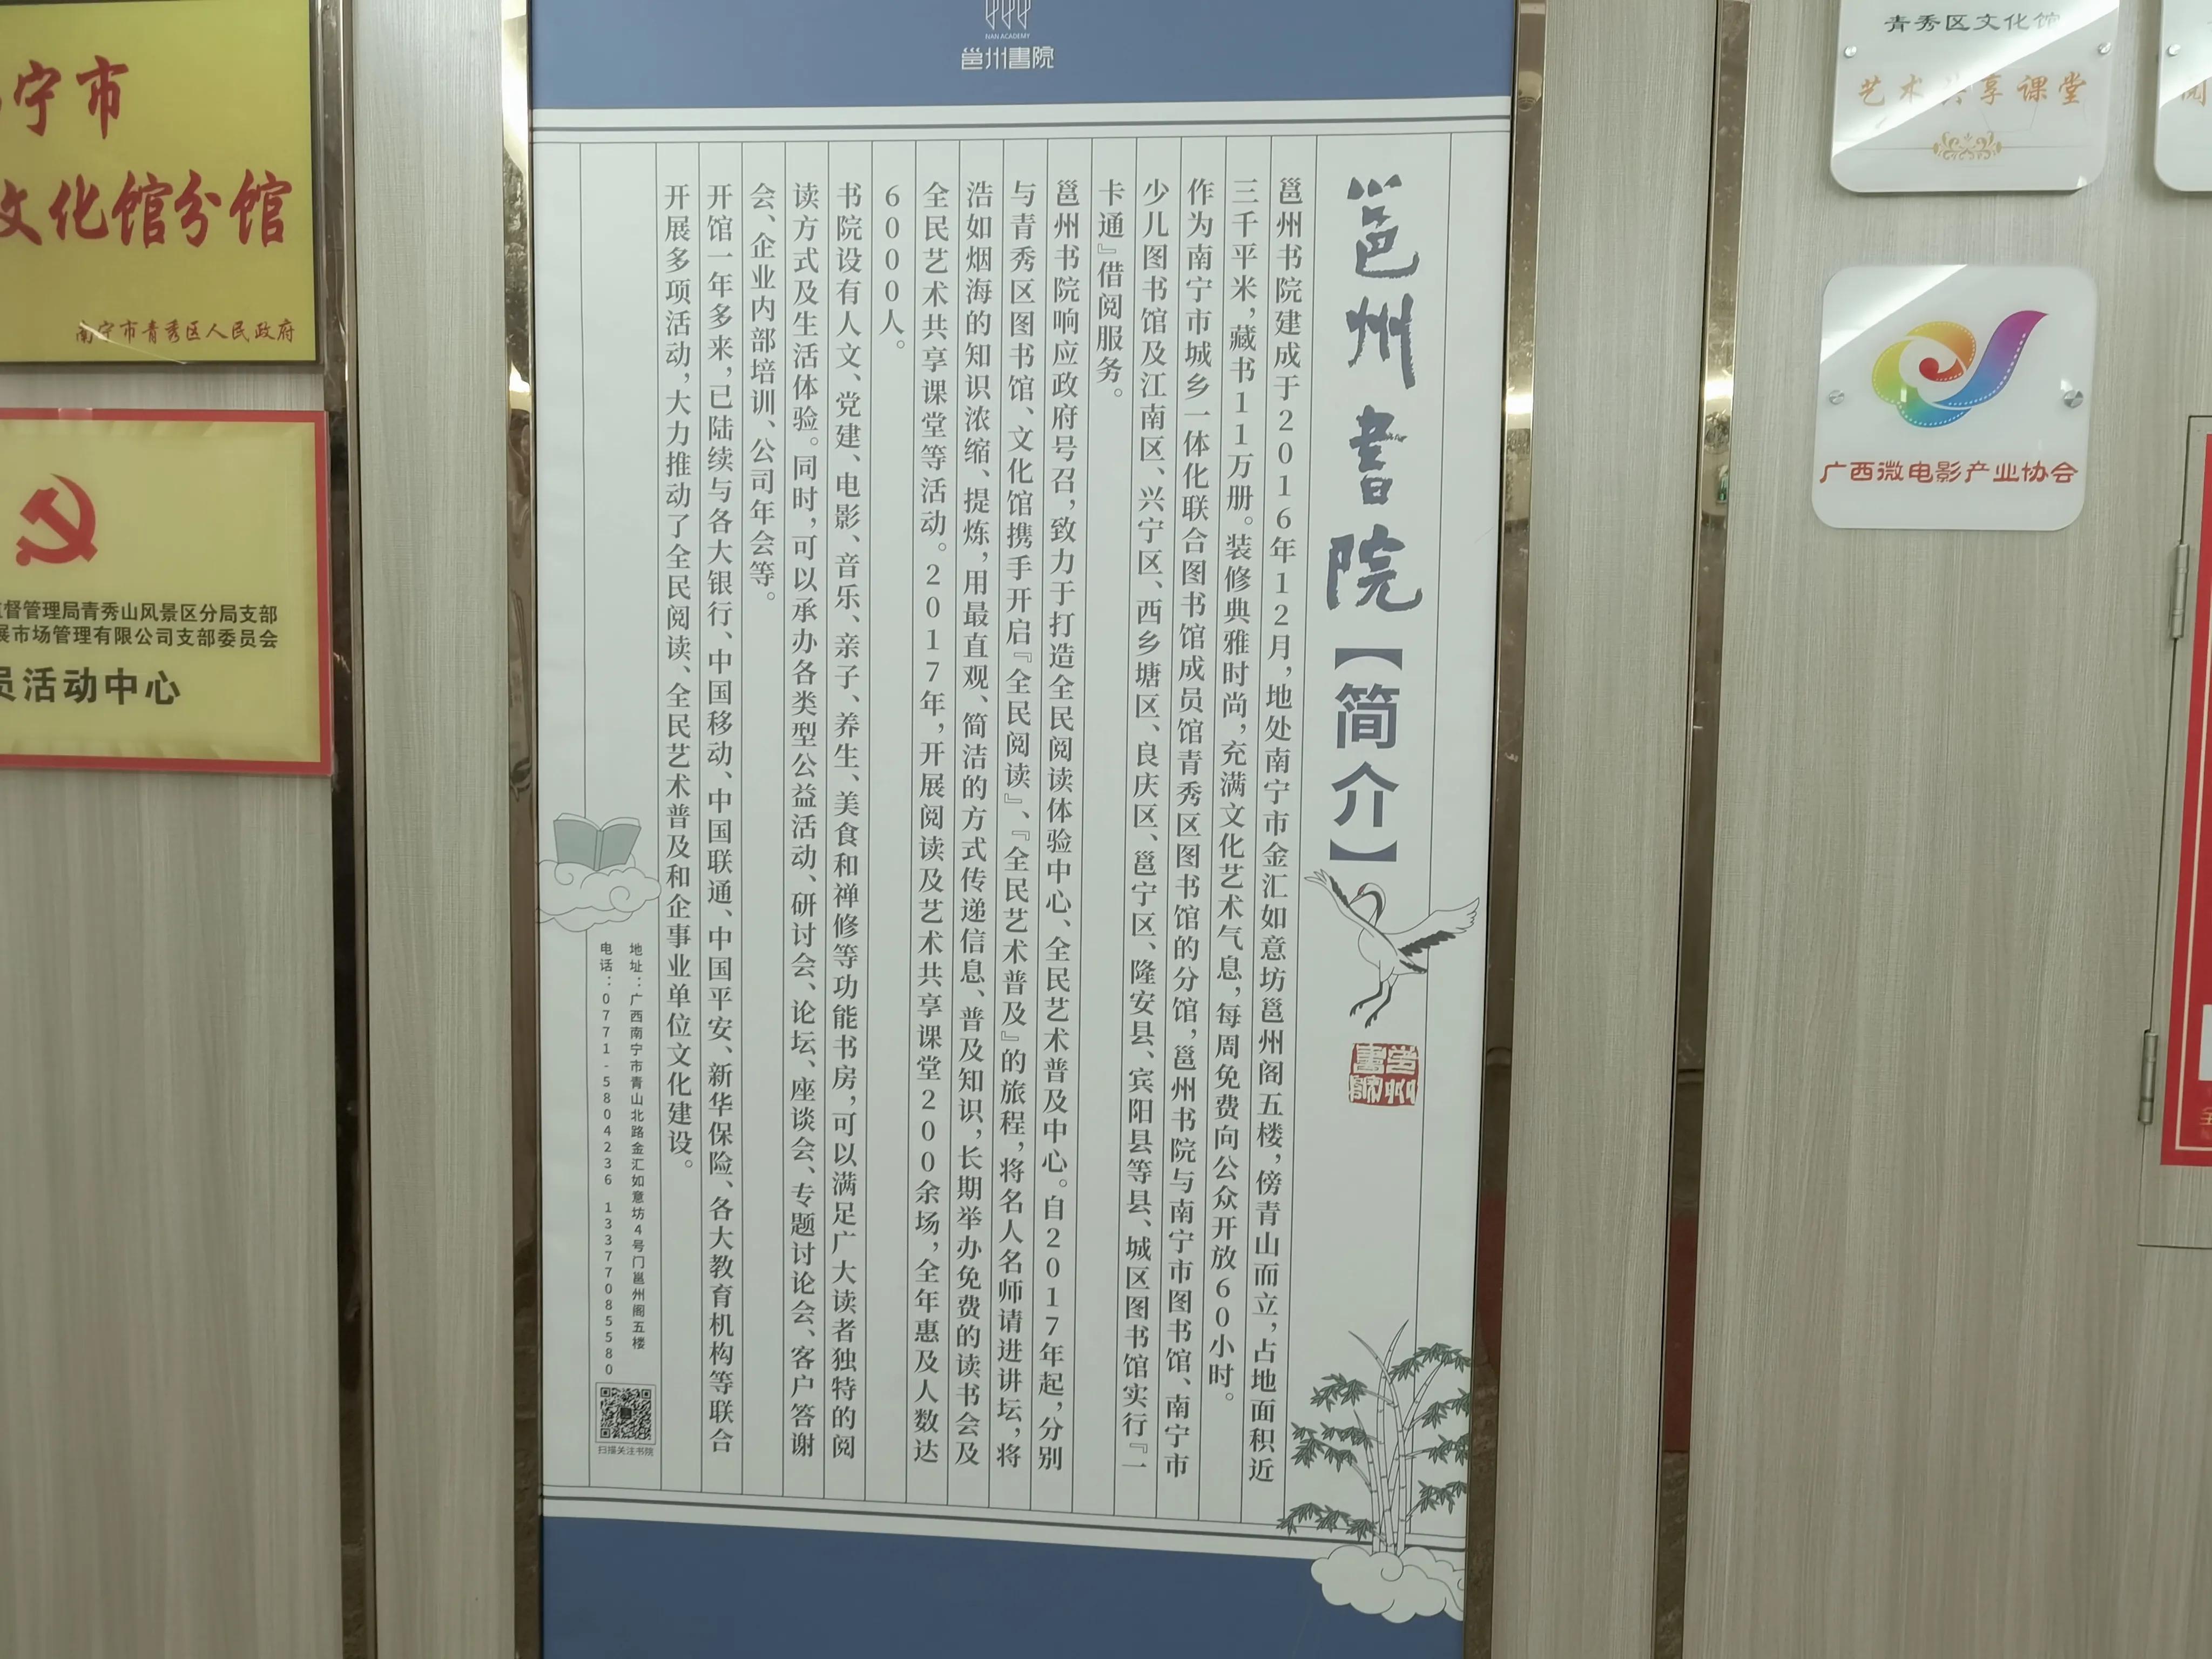 邕州書院
邕州書院【简介】
邕州书院建成于2016年12月，地处南宁市金汇如意坊邕州阁五楼，傍青山而立，占地面积近
三千平米，藏书11万册。装修典雅时尚，充满文化艺术气息，每周免费向公众开放60小时。
作为南宁市城乡一体化联合图书馆成员馆青秀区图书馆的分馆，邕州书院与南宁市图书馆、南宁市
少儿图书馆及江南区、兴宁区、西乡塘区、良庆区、邕宁区、隆安县、宾阳县等县、城区图书馆实行『一
卡通』借阅服务。
邕州书院响应政府号召，致力于打造全民阅读体验中心、全民艺术普及中心。自2017年起，分别
与青秀区图书馆、文化馆携手开启『全民阅读』、『全民艺术普及』的旅程，将名人名师请进讲坛，将
浩如烟海的知识浓缩、提炼，用最直观、简洁的方式传递信息、普及知识，长期举办免费的读书会及
全民艺术共享课堂等活动。2017年，开展阅读及艺术共享课堂200余场，全年惠及人数达
6000人。
书院设有人文、党建、电影、音乐、亲子、养生、美食和禅修等功能书房，可以满足广大读者独特的阅
读方式及生活体验。同时，可以承办各类型公益活动、研讨会、论坛、座谈会、专题讨论会、客户答谢
会、企业内部培训、公司年会等。
开馆一年多来，已陆续与各大银行、中国移动、中国联通、中国平安、新华保险、各大教育机构等联合
开展多项活动，大力推动了全民阅读、全民艺术普及和企事业单位文化建设。
地址：广西南宁市青山北路金汇如意坊4号门邕州阁五楼
电话：0771-5804236 13377085580
扫描关注书院
宁市
文化馆分馆
南宁市青秀区人民政府
督管理局青秀山风景区分局支部
展市场管理有限公司支部委员会
员活动中心
青秀区文化馆
艺术共享课堂
广西微电影产业协会